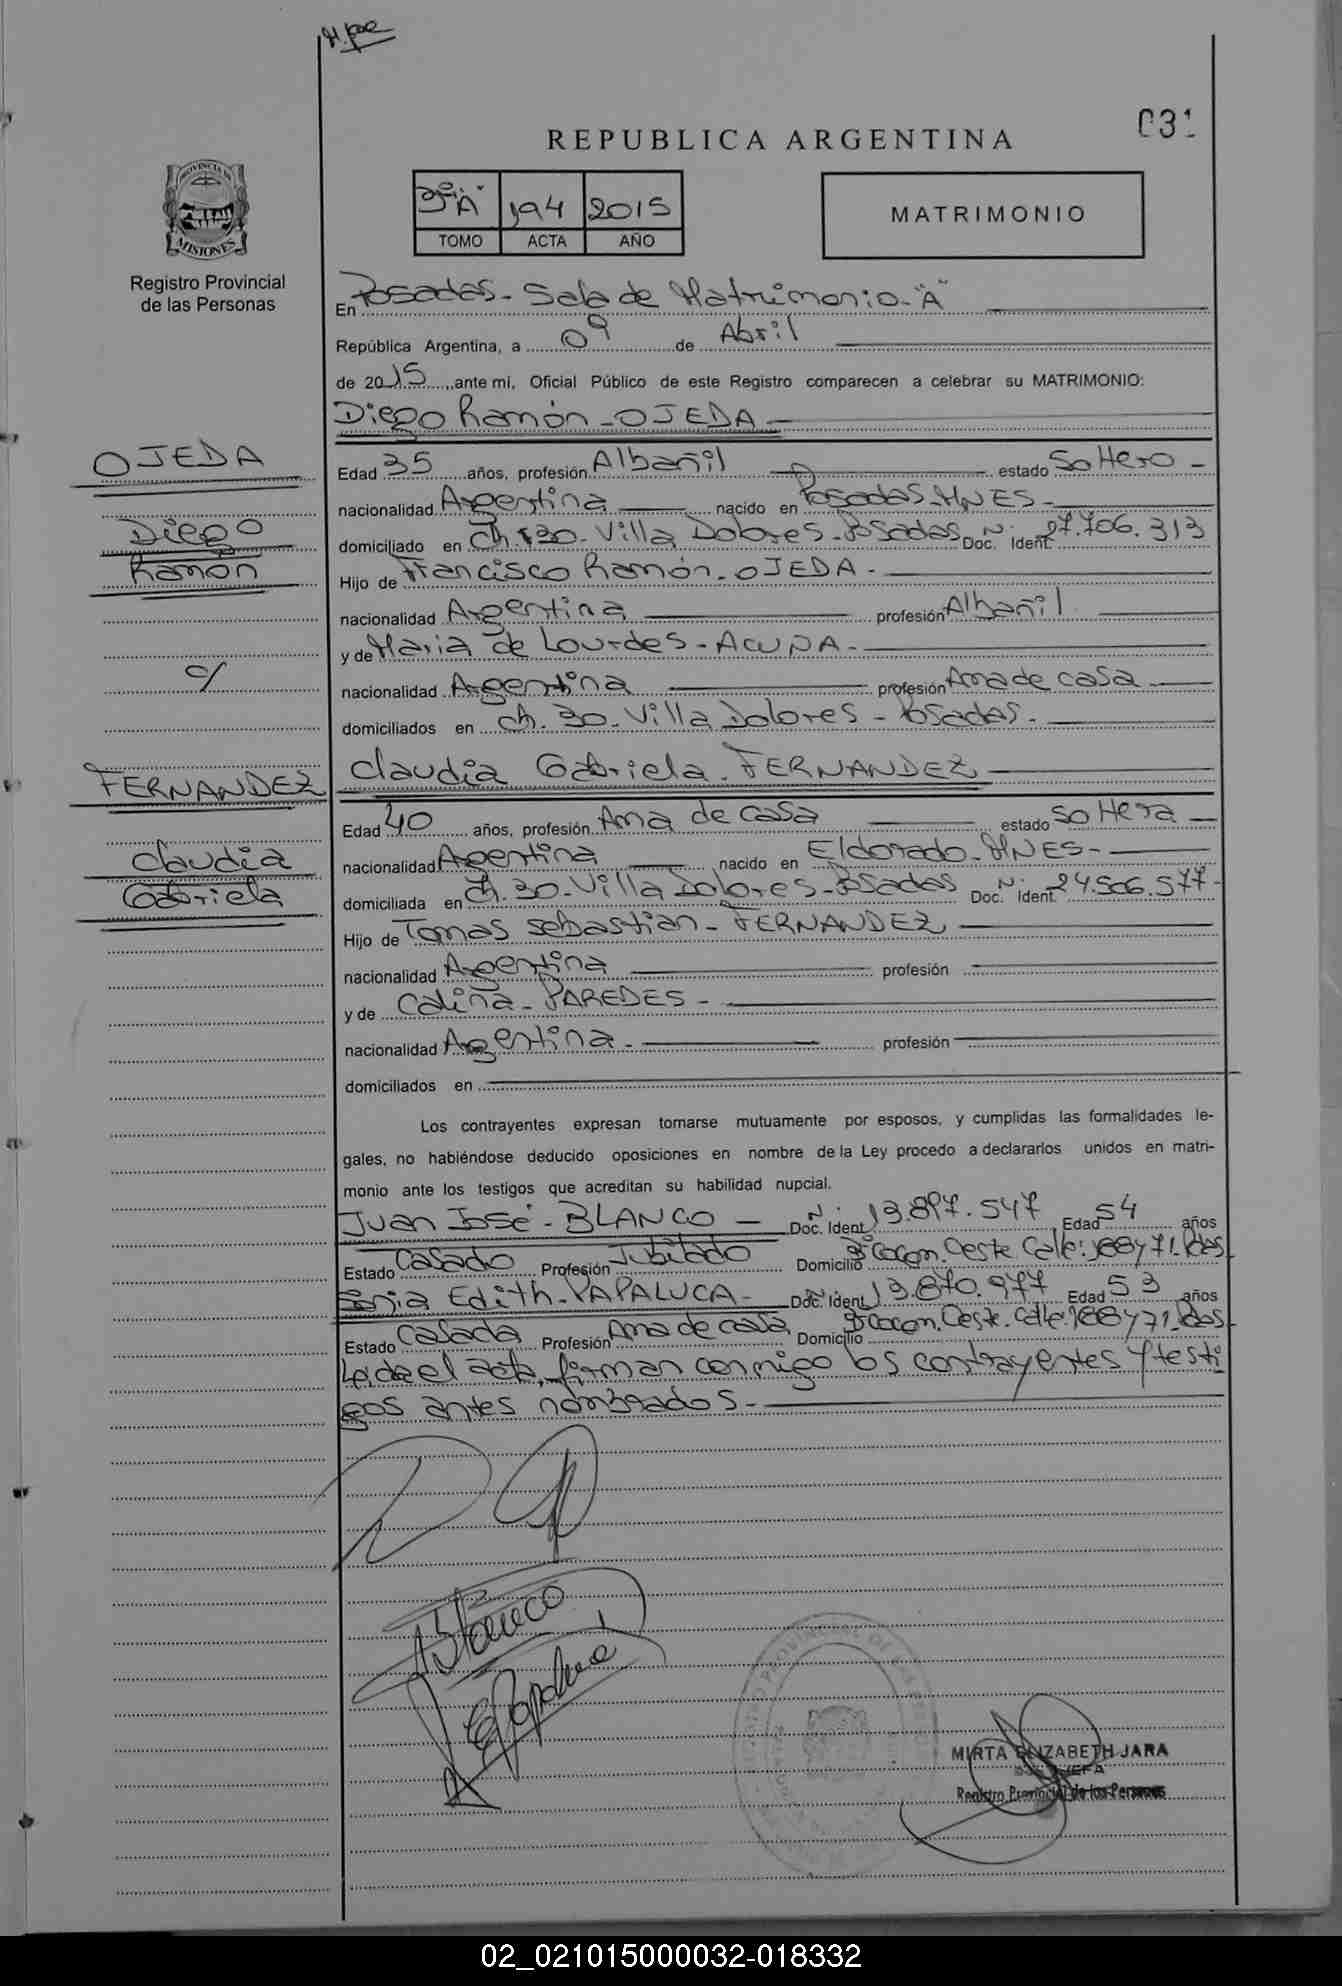 031
REPUBLICA ARGENTINA
"A" 194 2015
TOMO ACTA AÑO
MATRIMONIO
PROVINCIA DE MISIONES
Registro Provincial
de las Personas
En Posadas - Sala de Matrimonio - "A"
República Argentina, a 09 de Abril
de 2015, ante mi, Oficial Público de este Registro comparecen a celebrar su MATRIMONIO:
Diego Ramón - OJEDA
OJEDA
Diego
Ramón
c/
FERNANDEZ
Claudia
Gabriela
Edad 35 años, profesión Albañil estado Soltero -
nacionalidad Argentina nacido en Posadas. MNES -
domiciliado en Ch. 30. Villa Dolores - Posadas Doc. Ident. N: 27.706.313
Hijo de Francisco Ramón - OJEDA -
nacionalidad Argentina profesión Albañil
y de Maria de Lourdes - ACUÑA -
nacionalidad Argentina profesión Ama de casa
domiciliados en Ch. 30 - Villa Dolores - Posadas -
Claudia Gabriela - FERNANDEZ
Edad 40 años, profesión Ama de casa estado Soltera
nacionalidad Argentina nacido en Eldorado - MNES -
domiciliada en Ch. 30 - Villa Dolores - Posadas Doc. Ident. N: 24.506.577 -
Hijo de Tomas Sebastian - FERNANDEZ
nacionalidad Argentina profesión
y de Caliña - PAREDES -
nacionalidad Argentina - profesión
domiciliados en
Los contrayentes expresan tomarse mutuamente por esposos, y cumplidas las formalidades le-
gales, no habiéndose deducido oposiciones en nombre de la Ley procedo a declararlos unidos en matri-
monio ante los testigos que acreditan su habilidad nupcial.
Juan José - BLANCO - Doc. Ident. N: 13.897.547 Edad 54 años
Estado Casado Profesión Jubilado Domicilio Cocom. Oeste. Calle: 188 y 71. Pdas
Sonia Edith - PAPALUCA - Doc. Ident. 13.870.977 Edad 53 años
Estado Casada Profesión Ama de casa Domicilio Cocom. Oeste. Calle: 188 y 71. Pdas
Leída el acta, firman conmigo los contrayentes y testi
gos antes nombrados -
Blanco
EPapaluca
MIRTA ELIZABETH JARA
Registro Provincial de las Personas
02_021015000032-018332